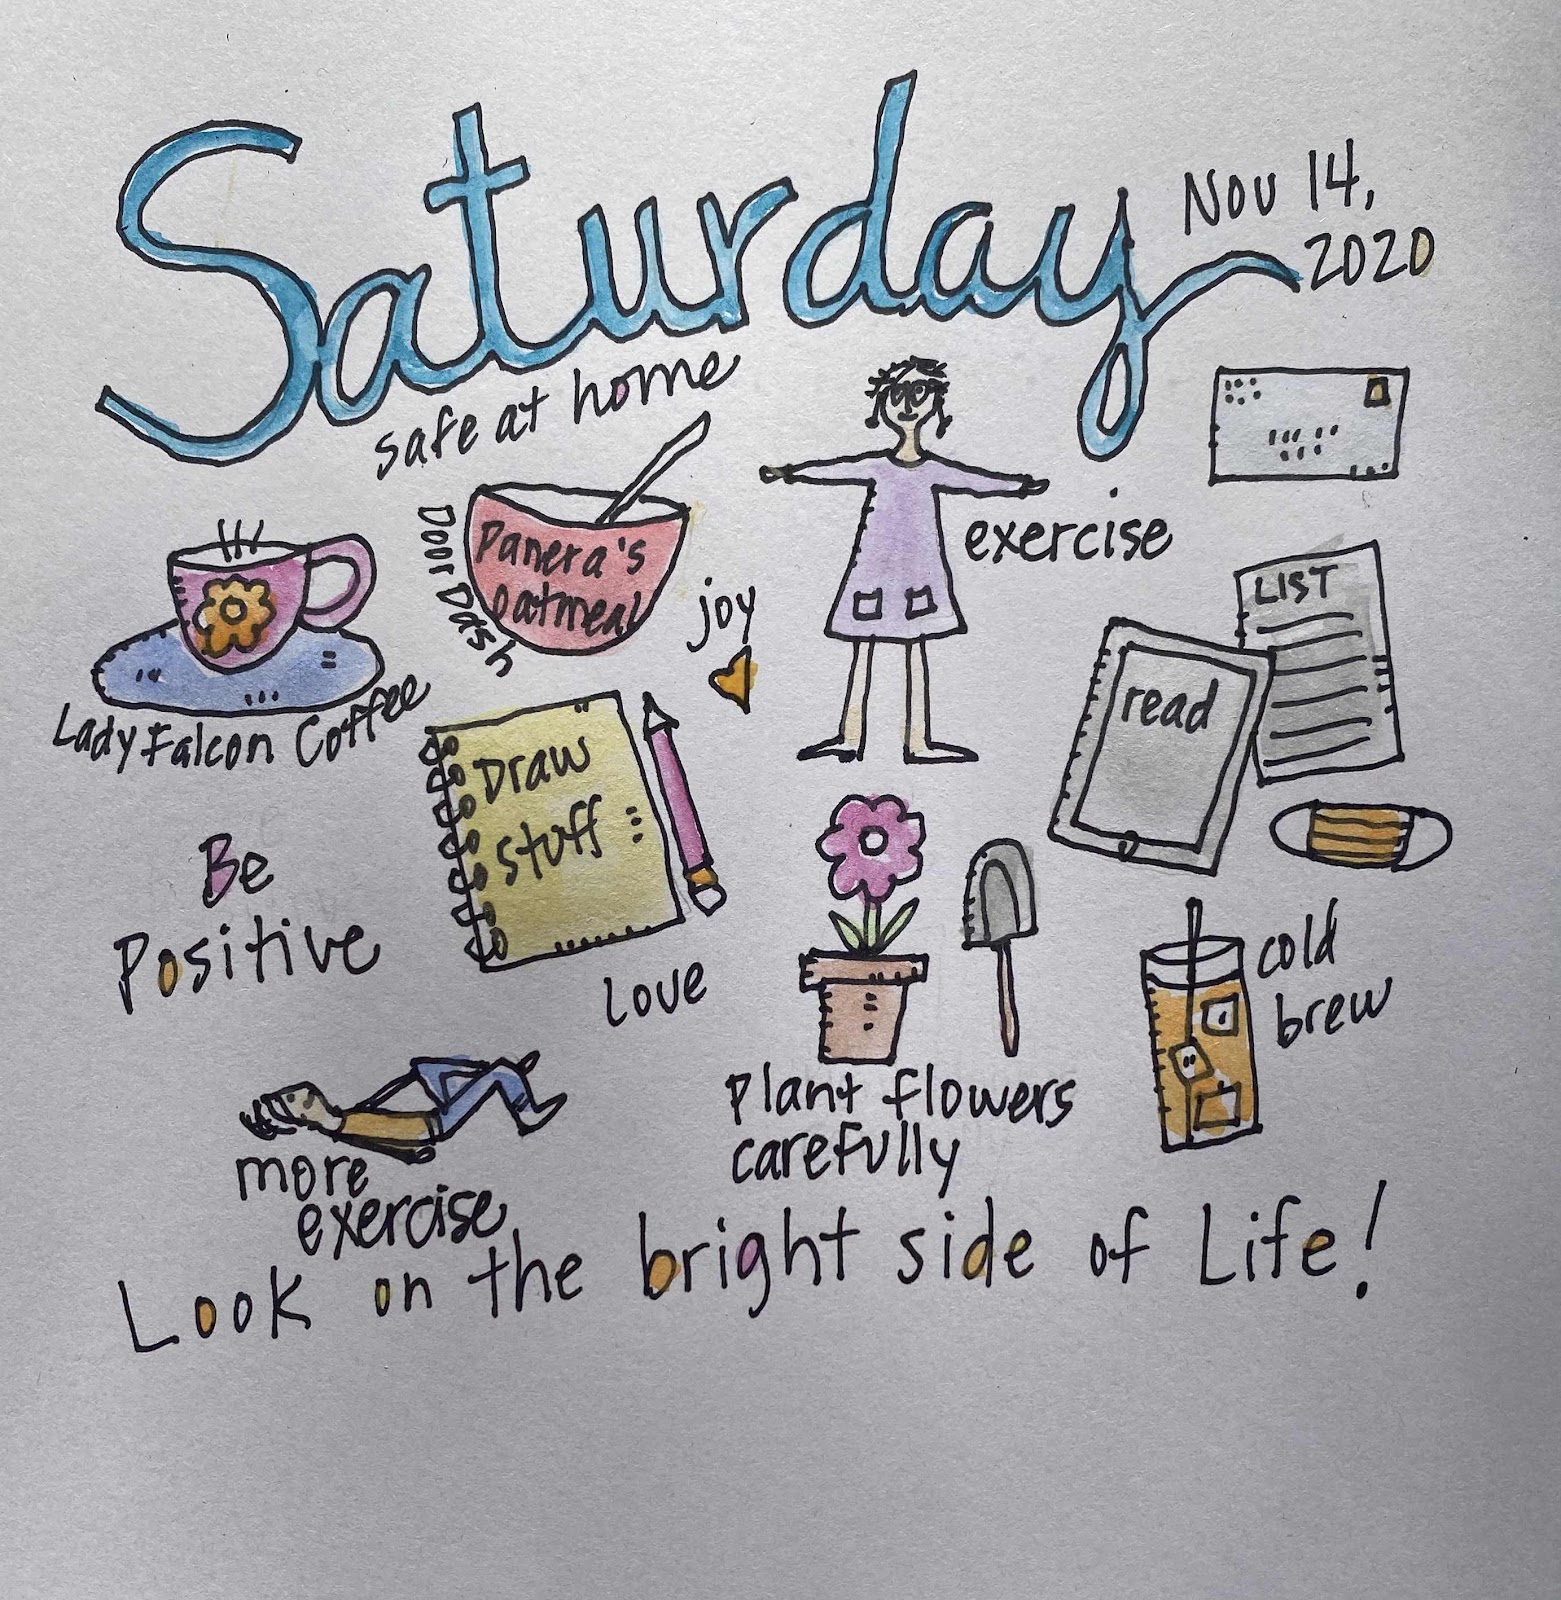 Saturday
Nov 14,
2020
safe at home
Door Dash
Panera's
oatmeal
exercise
joy
LIST
read
Lady Falcon Coffee
Draw
stuff
Be
Positive
Love
cold
brew
Plant flowers
carefully
more
exercise
Look on the bright side of Life!